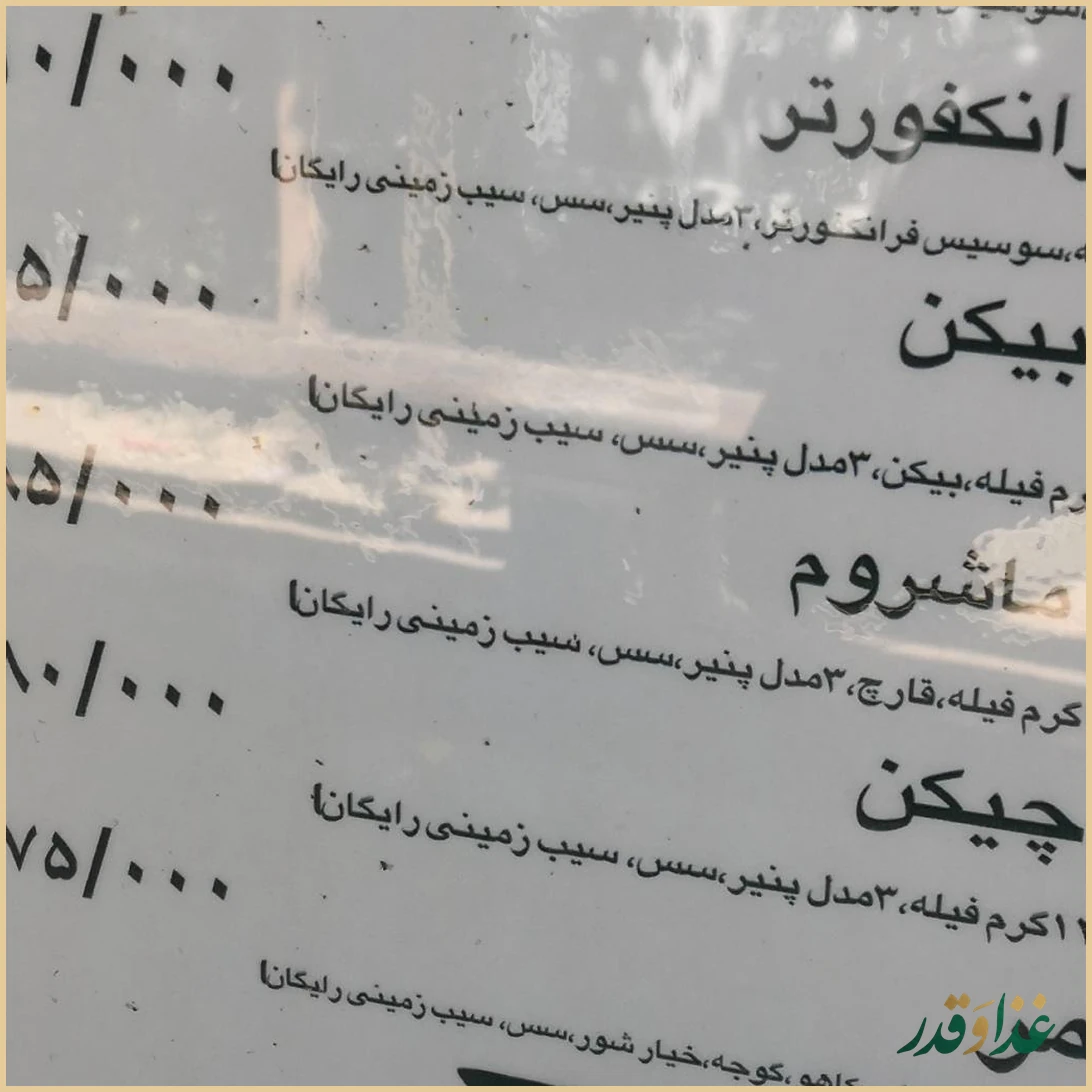 ۰/۰۰۰
رانکفورتر
سوسیس فرانکفورتر،۳مدل پنیر،سس، سیب زمینی رایگان)
۵/۰۰۰
بیکن
رم فیله،بیکن،۳مدل پنیر،سس، سیب زمینی رایگان)
۸۵/۰۰۰
ماشروم
گرم فیله،قارچ،۳مدل پنیر،سس، سیب زمینی رایگان)
۸۰/۰۰۰
چیکن
گرم فیله،۳مدل پنیر،سس، سیب زمینی رایگان)
۷۵/۰۰۰
کاهو،گوجه،خیار شور،سس، سیب زمینی رایگان)
غذا و قدر